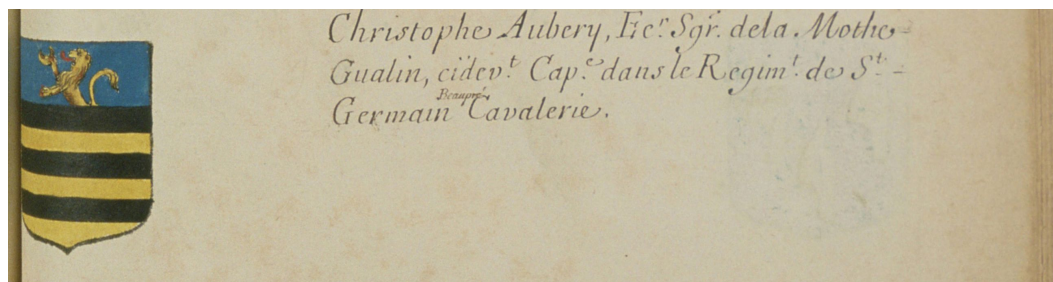 Christophe Aubery, Ecr. Sgr. dela Mothe-
Gualin, cidevt. Cape. dans le Regimt. de St.-
Beaupré
Germain Cavalerie.